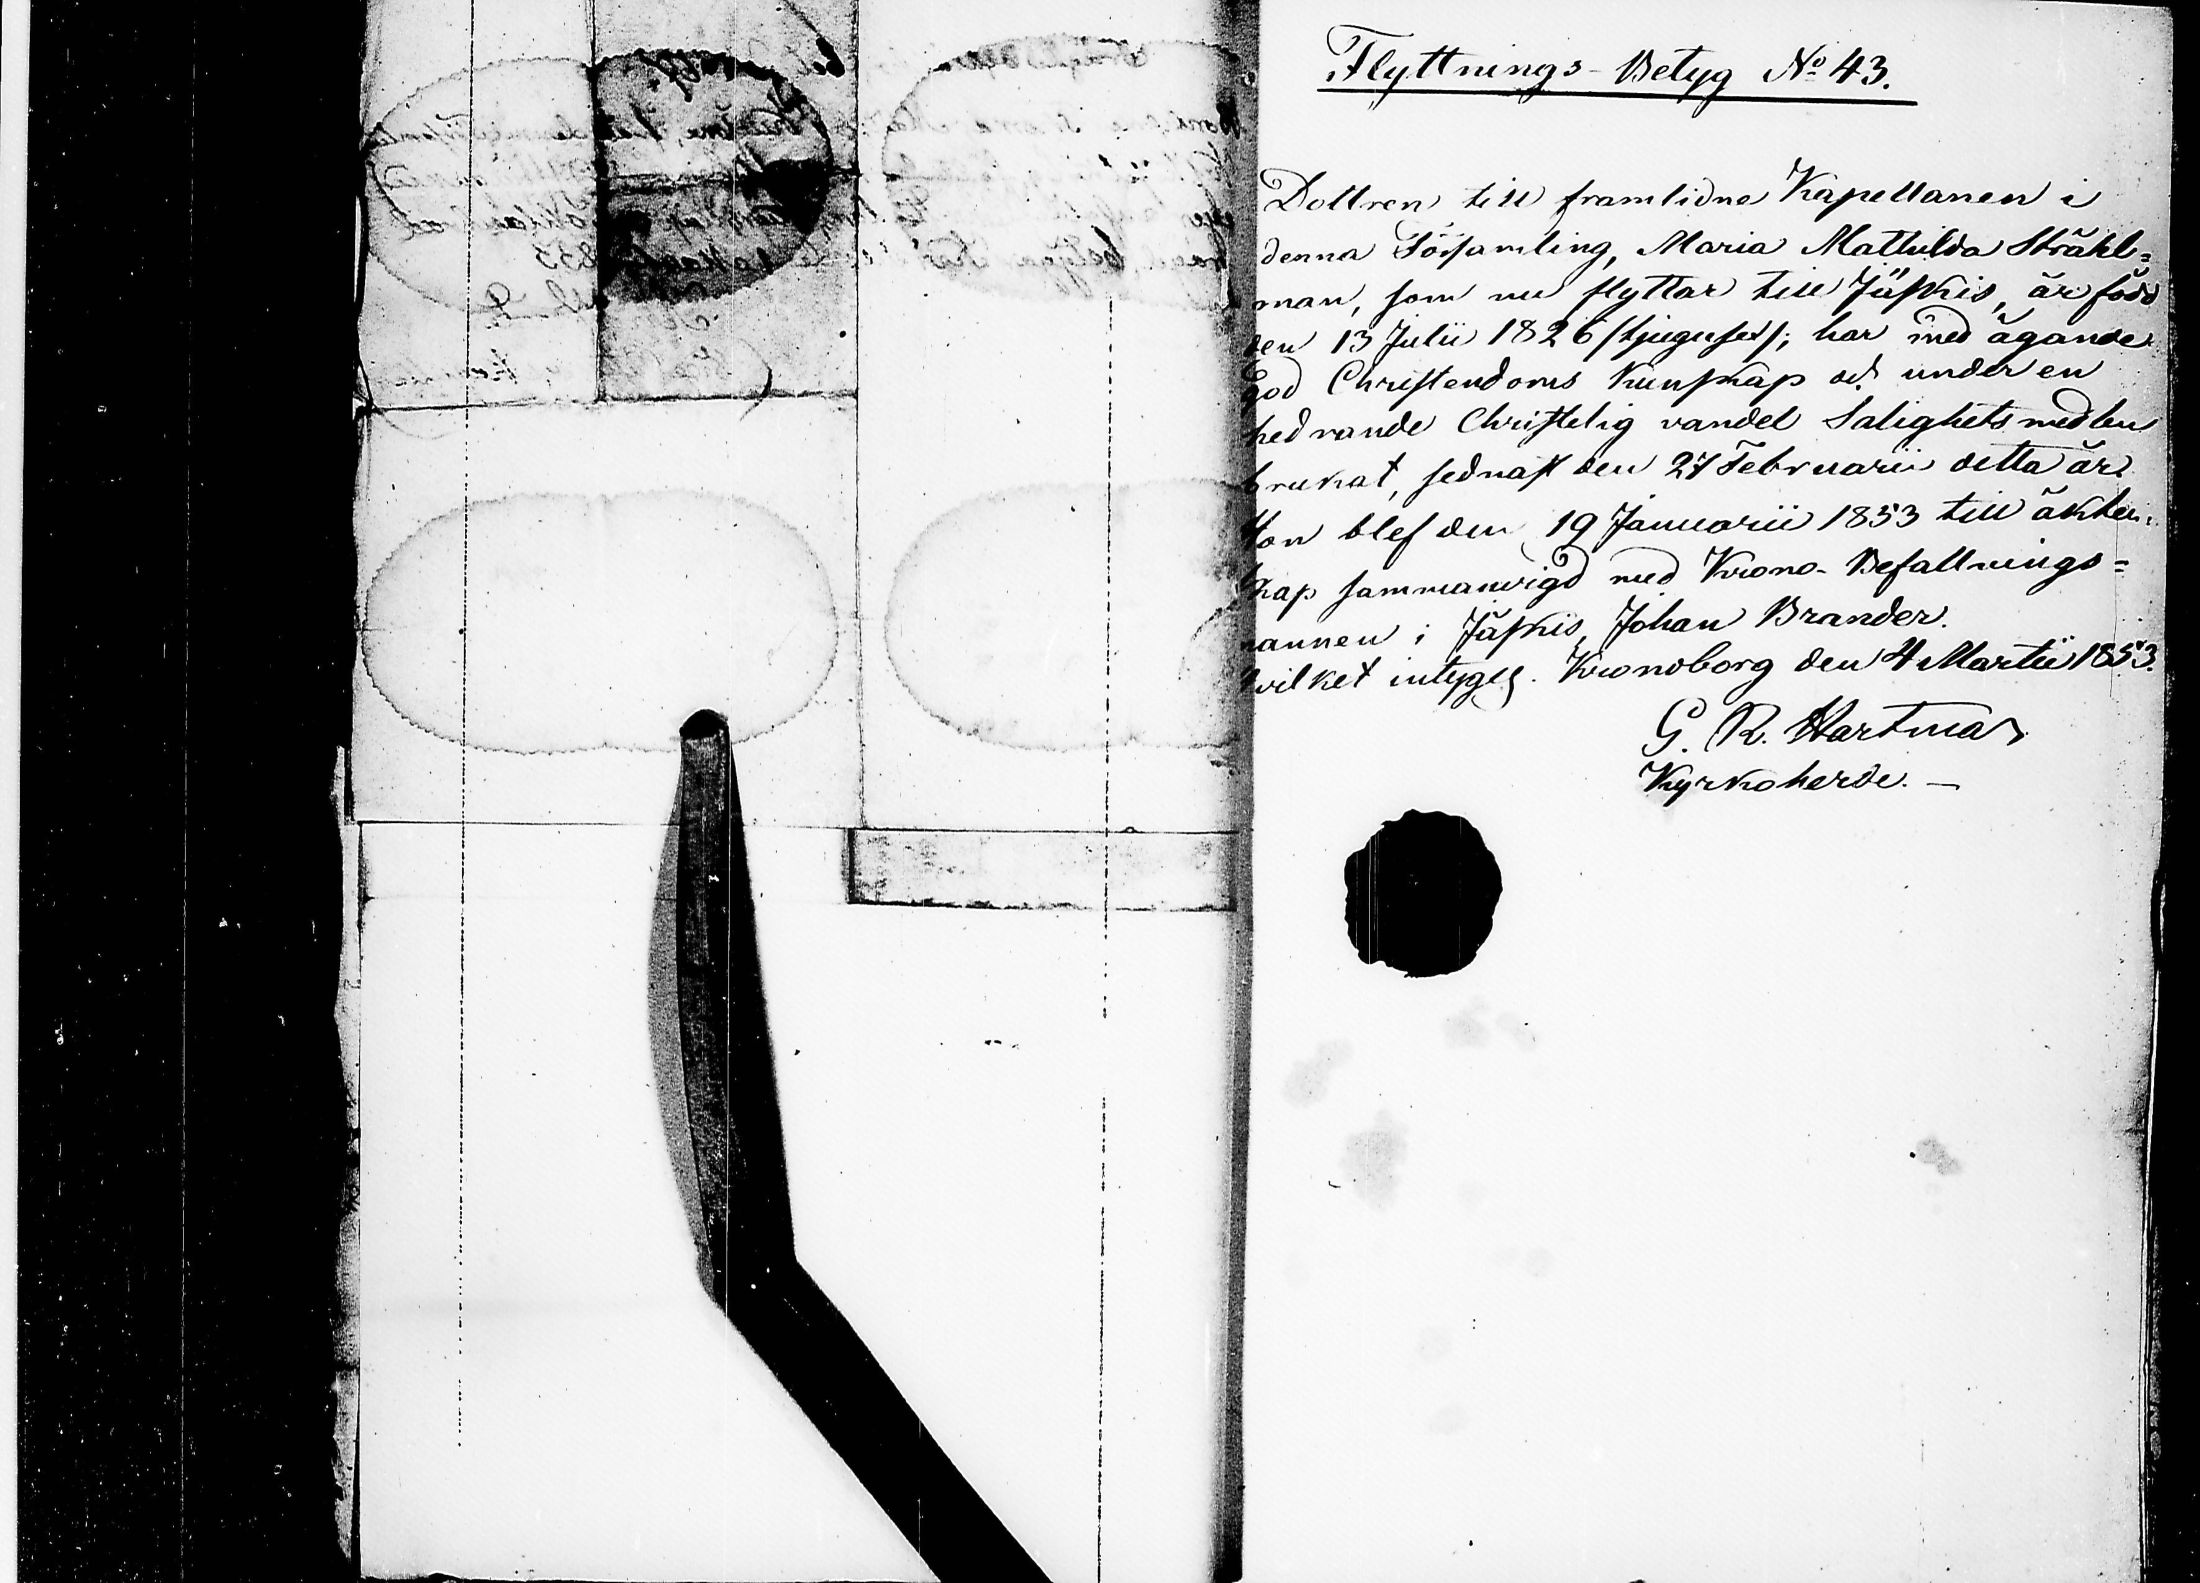 Flyttnings-Betyg No 43.
Dottren till framlidne Kapellanen i
denna Församling, Maria Mathilda Stråhl=
man, som nu flyttar till Jäskis, är född
den 13 Julii 1826 /tjugusex/; har med ägande
god Christendoms Kunskap och under en
hedrande Christelig vandel Salighetsmedlen
brukat, sednast den 27 Februarii detta år.
Hon blef den 19 Januarii 1853 till äkten=
skap sammanvigd med Krono-Befallnings=
mannen i Jäskis, Johan Brander.
hvilket intyges. Kronoborg den 4 Martii 1853.
G. R. Hartman
Kyrkoherde. —